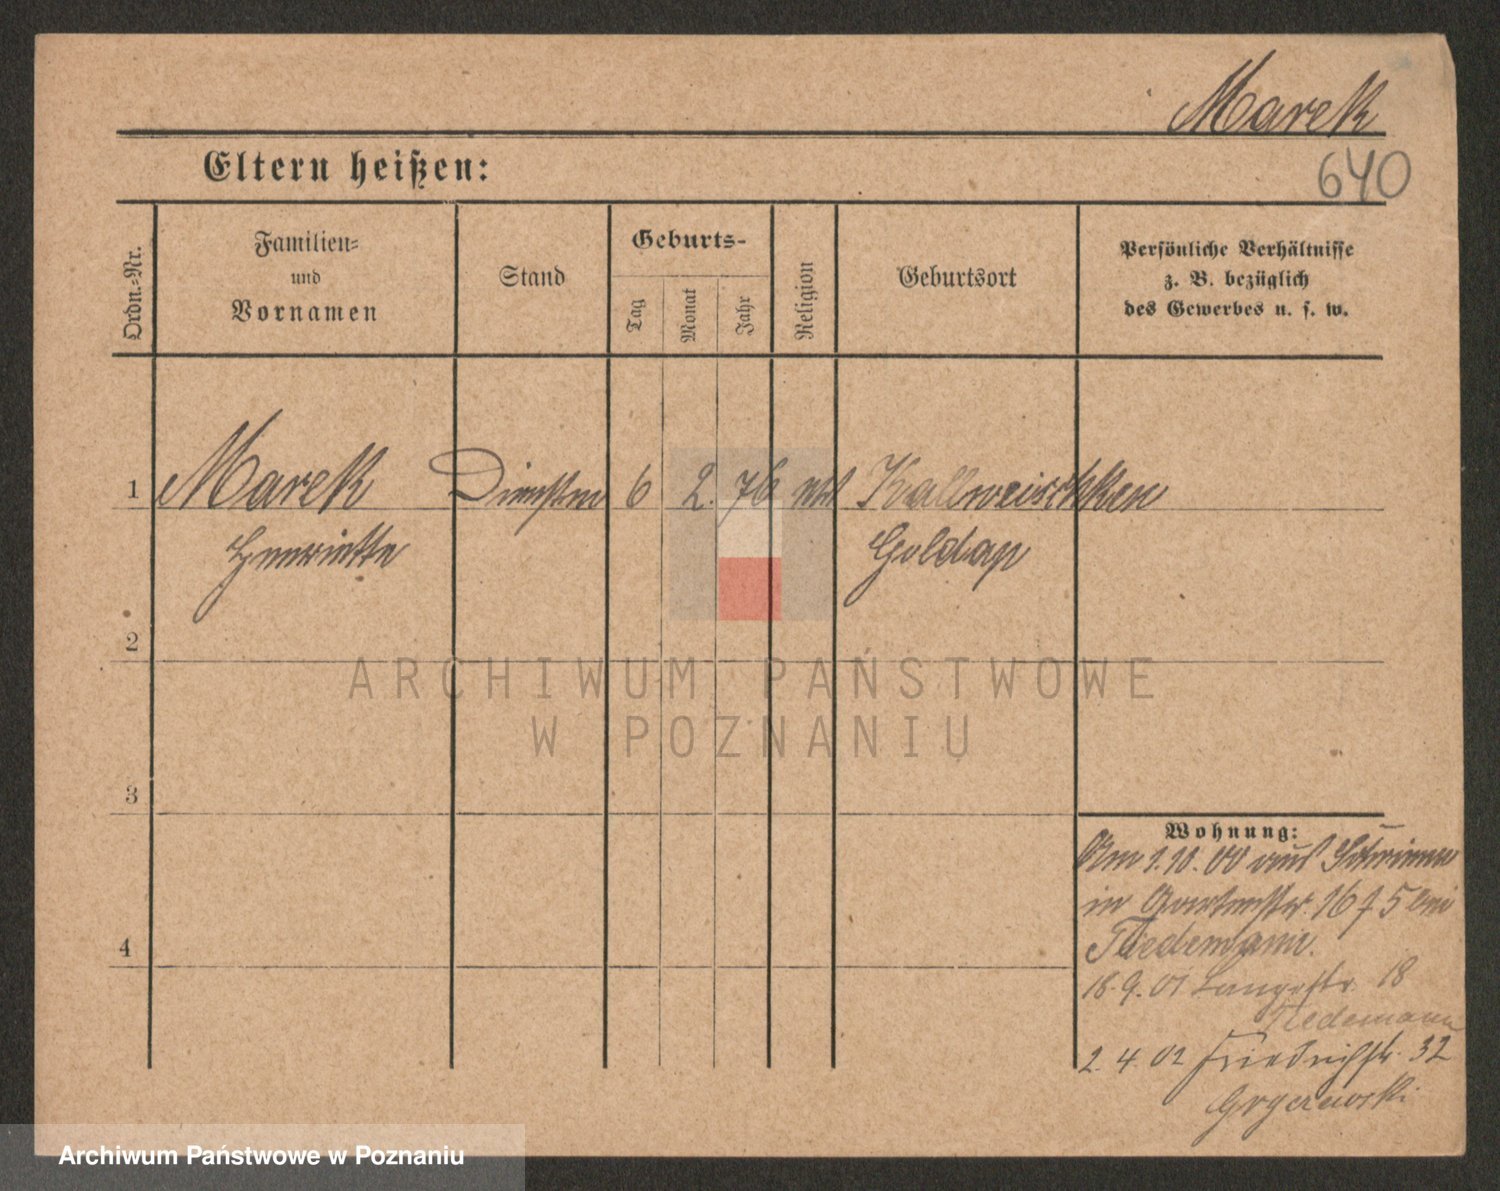 Marek
640
Eltern heißen:
Ordn.-Nr.
Familien-
und
Vornamen
Stand
Geburts-
Tag
Monat
Jahr
Religion
Geburtsort
Persönliche Verhältnisse
z. B. bezüglich
des Gewerbes u. s. w.
1 Marek 6 2. 76 Kallweischken
Henriette Goldap
2
3
4
Wohnung:
Am 1.10.00 aus
in Gartenstr. 16 bei
Tiedemann.
18.9.01 Langestr. 18
Tiedemann
2.4.02 Friedrichstr. 32
Gryczewski
ARCHIWUM PAŃSTWOWE
W POZNANIU
Archiwum Państwowe w Poznaniu